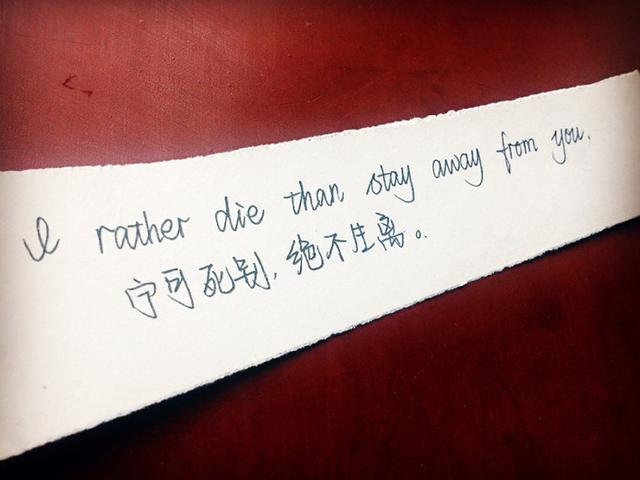 I rather die than stay away from you.
宁可死别,绝不生离。